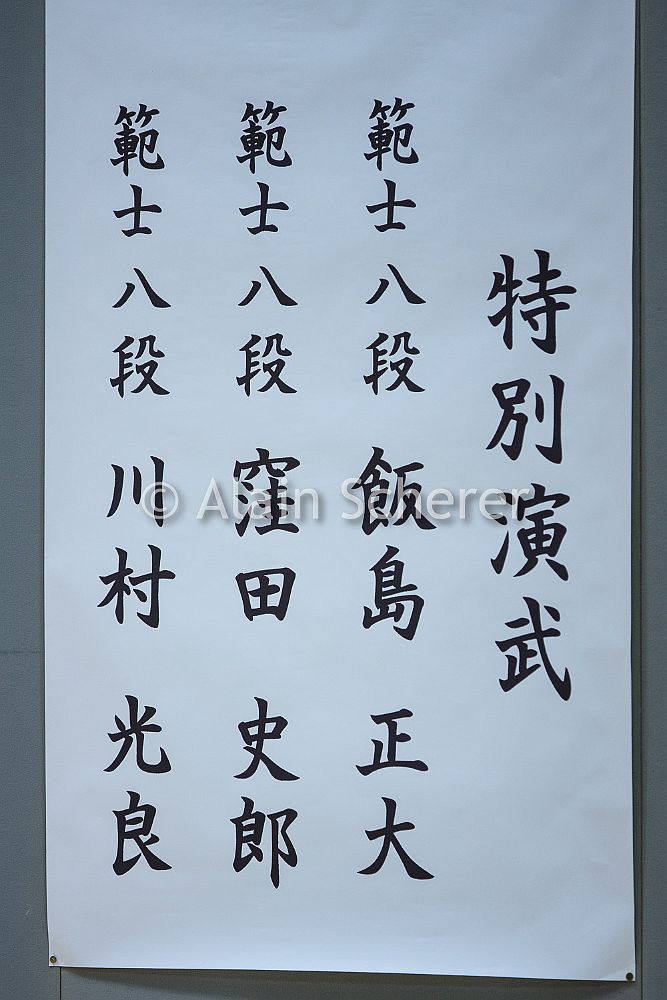 特別演武
範士八段 飯島 正大
範士八段 窪田 史郎
範士八段 川村 光良
© Alain Scherer